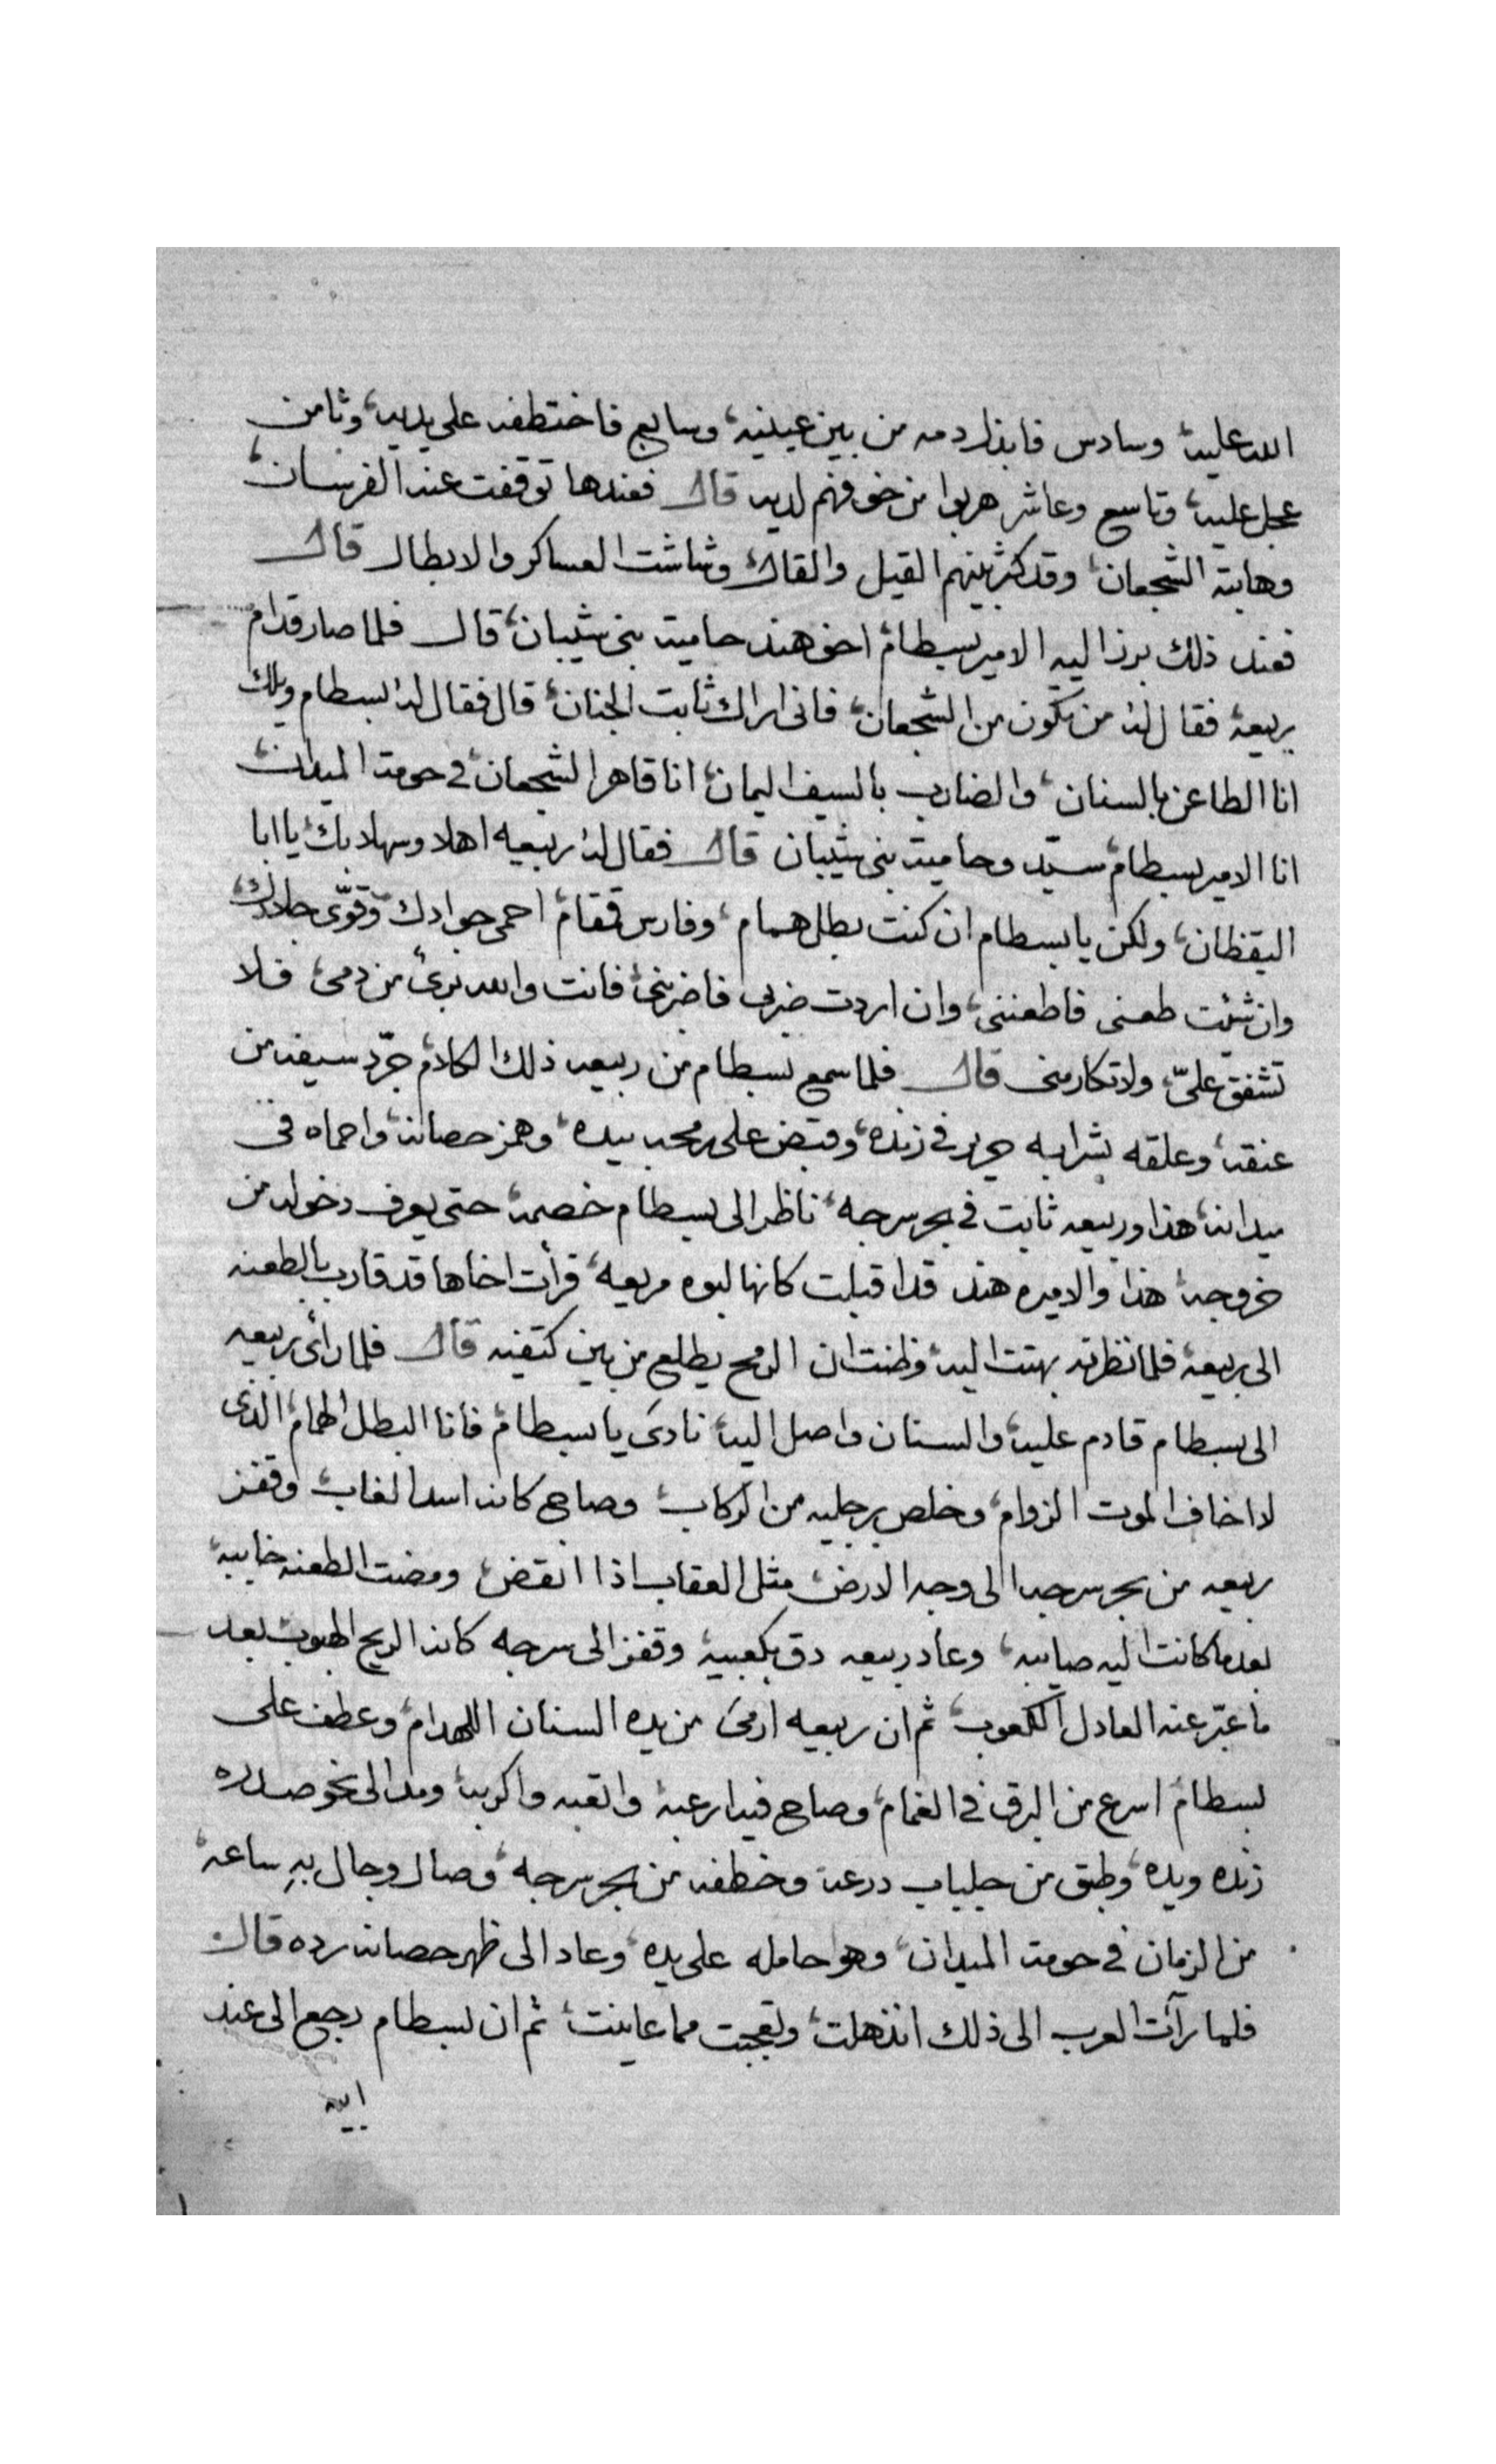 الله عليه وسادس فابذا دمه من بين عينيه، وسابع فاختطفه على يديه، وثامن
عجل عليه، وتاسع وعاشر هربوا من خوفهم لديه قال فعندها توقفت عنه الفرسان
وهابته الشجعان، وقد كثر بينهم القيل والقال، وشاشت العساكر والابطال قال
فعند ذلك برز اليه الامير بسطام، اخو هند حاميت بني شيبان، قال فلما صار قدام
ربيعه فقال له من تكون من الشجعان، فاني اراك ثابت الجنان، قال فقال له بسطام ويلك
انا الطاعن بالسنان، والضارب بالسيف اليمان، انا قاهر الشجعان، في حومة الميدان
انا الامير بسطام سيّد وحاميت بني شيبان قال فقال له ربيعه اهلا وسهلا بك يا ابا
اليقظان، ولكن يا بسطام ان كنت بطل همام، وفارس قمقام، احمي جوادك وقوّي جلادك
وان شئت طعني فاطعنني، وان اردت ضربي فاضربني، فانت والله بريء من دمي، فلا
تشفق عليّ، ولا تكارمني قال فلما سمع بسطام من ربيعه ذلك الكلام جرّد سيفه من
عنقه، وعلقه بشرابه حرير في زنده، وقبض على رمحه بيده، وهمز حصانه، واحماه في
ميدانه، هذا وربيعه ثابت في بحر سرجه، ناظر الى بسطام خصمه، حتى يعرف دخوله من
خروجه، هذا والاميره هند قد اقبلت كانها لبوه مريعه، فرأت اخاها قد قارب بالطعنه
الى ربيعه، فلما نظرته بهتت اليه، وظنت ان الرمح يطلع من بين كتفيه قال فلما رأى ربيعه
الى بسطام قادم عليه، والسنان واصل اليه، نادى يا بسطام، فانا البطل الهمام، الذي
لا اخاف الموت الزوام، وخلص رجليه من الركاب، وصاح كانه اسد الغاب، وقفز
ربيعه من بحر سرجه الى وجه الارض، مثل العقاب اذا انقض، ومضت الطعنه خايبه،
بعد ما كانت اليه صايبه، وعاد ربيعه دق بكعبيه، وقفز الى سرجه كانه الريح الهبوب، بعد
ما عبّر عنه العادل الكعوب، ثم ان ربيعه ارمى من يده السنان اللهدام، وعطف على
بسطام اسرع من البرق في الغمام، وصاح فيه ارعبه، واتعبه واكربه، ومد الى نحو صدره
زنده ويده، وطبق من جلباب درعه وخطفه من بحر سرجه، وصال وجال به ساعه
من الزمان في حومة الميدان، وهو حامله على يده، وعاد الى ظهر حصانه رده قال
فلما رأت العرب الى ذلك انذهلت، وتعجبت مما عاينت، ثم ان بسطام رجع الى عند
ابيه